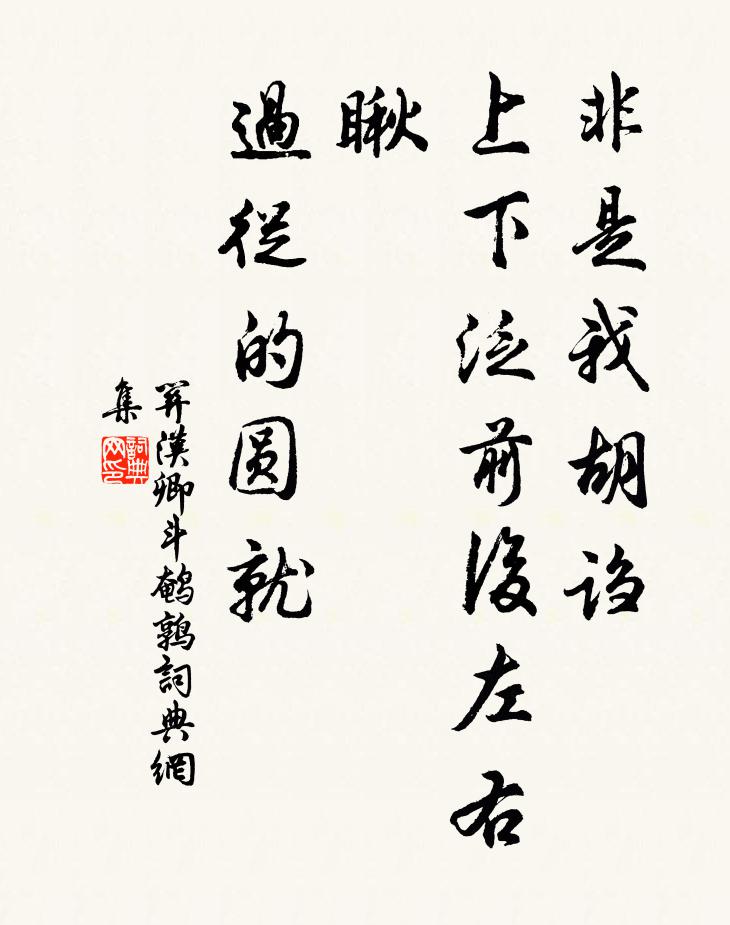 非是我胡诌
上下泛前後左右
瞅
過從的圆就
關漢卿斗鹌鹑詞典網
集
詞典
网印